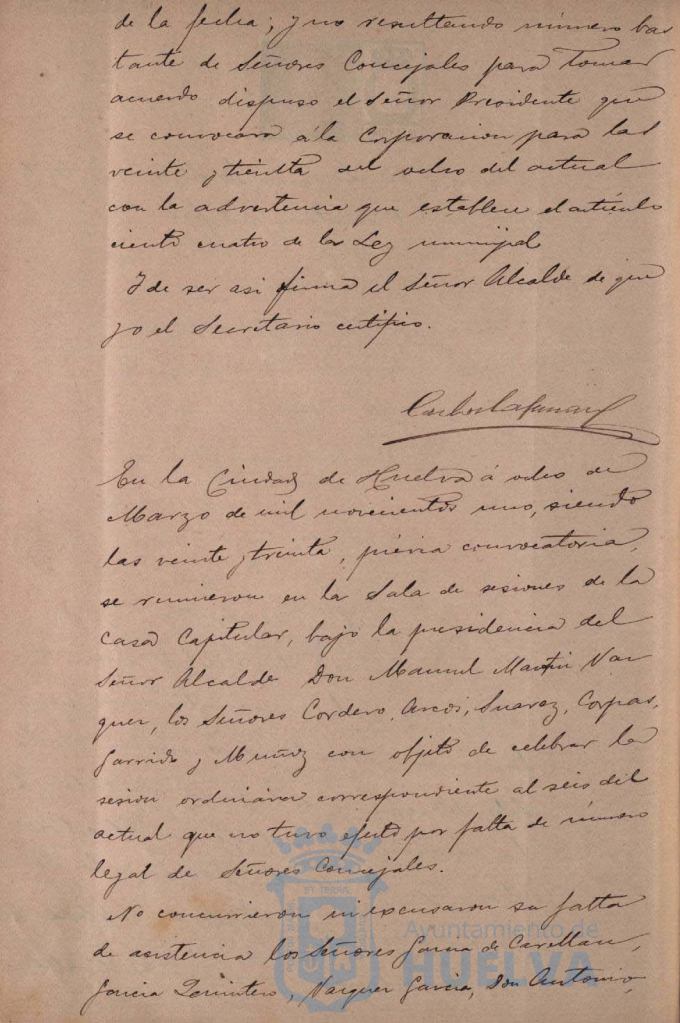 de la fecha; y no resultando número bas
tante de Señores Concejales para tomar
acuerdo dispuso el Señor Presidente que
se convocara á la Corporacion para las
veinte y treinta del ocho del actual
con la advertencia que establece el artículo
ciento cuatro de la Ley municipal
Y de ser asi firma el Señor Alcalde de que
yo el Secretario certifico.
En la Ciudad de Huelva á ocho de
Marzo de mil novecientos uno, siendo
las veinte y treinta, prévia convocatoria,
se reunieron en la Sala de sesiones de la
casa Capitular, bajo la presidencia del
Señor Alcalde Don Manuel Martin Vaz
quez, los Señores Cordero, Arcos, Suarez, Corpas,
Garrido y Muñoz con objeto de celebrar la
sesion ordinaria correspondiente al seis del
actual que no tuvo efecto por falta de número
legal de Señores Concejales.
No concurrieron ni excusaron su falta
de asistencia los Señores Garcia de
Garcia Quintero, Vazquez Garcia, Don Antonio,
Ayuntamiento de
HUELVA